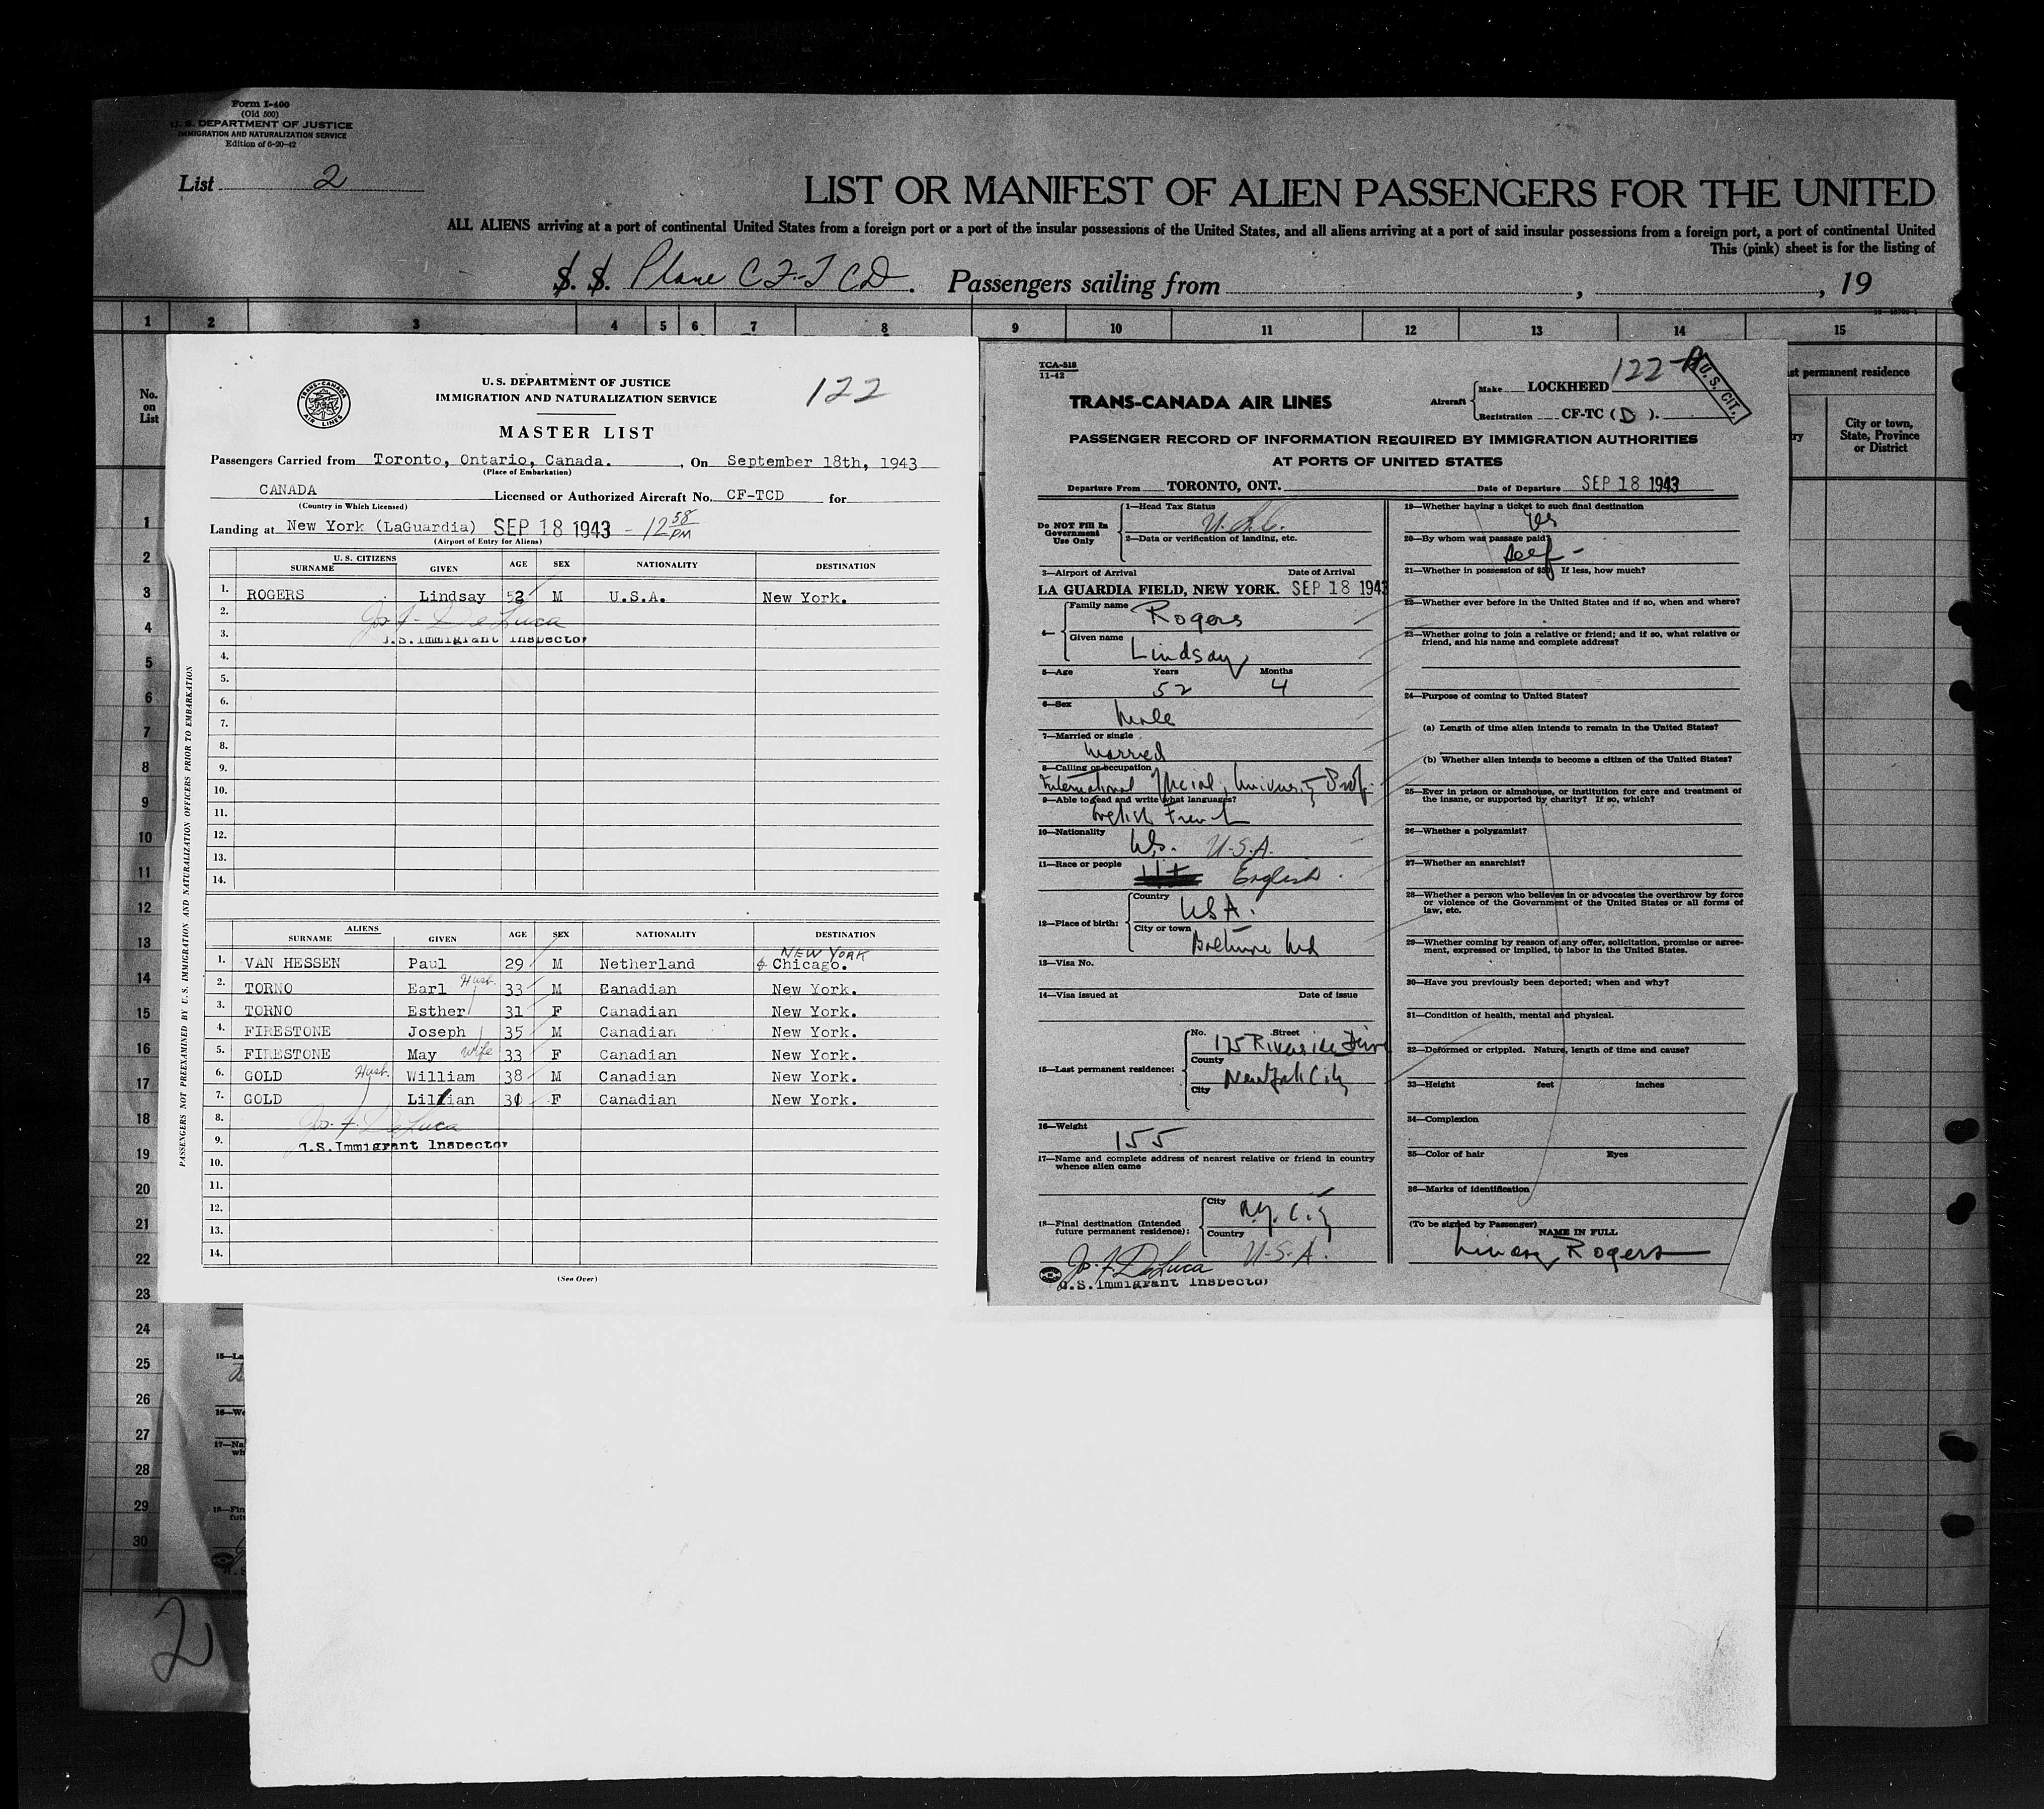 Form I-400
(Old 500)
U. S. DEPARTMENT OF JUSTICE
IMMIGRATION AND NATURALIZATION SERVICE
Edition of 6-20-42
List 2
LIST OR MANIFEST OF ALIEN PASSENGERS FOR THE UNITED
ALL ALIENS arriving at a port of continental United States from a foreign port or a port of the insular possessions of the United States, and all aliens arriving at a port of said insular possessions from a foreign port, a port of continental United
This (pink) sheet is for the listing of
S. S. Plane CF-TCD. Passengers sailing from , , 19
1 2 3 4 5 6 7 8 9 10 11 12 13 14 15
No. on List
st permanent residence
ry
City or town, State, Province or District
1
2
3
4
5
6
7
8
9
10
11
12
13
14
15
16
17
18
19
20
21
22
23
24
25
26
27
28
29
30
15—La
16—We
17—Na
wh
18—Fin
futu
2
TRANS-CANADA AIR LINES
U. S. DEPARTMENT OF JUSTICE
IMMIGRATION AND NATURALIZATION SERVICE
122
MASTER LIST
Passengers Carried from Toronto, Ontario, Canada. , On September 18th, 1943
(Place of Embarkation)
CANADA Licensed or Authorized Aircraft No. CF-TCD for
(Country in Which Licensed)
Landing at New York (LaGuardia) SEP 18 1943 - 12 58 PM
(Airport of Entry for Aliens)
PASSENGERS NOT PREEXAMINED BY U.S. IMMIGRATION AND NATURALIZATION OFFICERS PRIOR TO EMBARKATION
U. S. CITIZENS
SURNAME GIVEN AGE SEX NATIONALITY DESTINATION
1. ROGERS Lindsay 52 M U.S.A. New York.
2. Jos. F. DeLuca
3. U.S. Immigrant Inspector
4.
5.
6.
7.
8.
9.
10.
11.
12.
13.
14.
ALIENS
SURNAME GIVEN AGE SEX NATIONALITY DESTINATION
NEW YORK
1. VAN HESSEN Paul 29 M Netherland & Chicago.
2. TORNO Earl Husb. 33 M Canadian New York.
3. TORNO Esther 31 F Canadian New York.
4. FIRESTONE Joseph 35 M Canadian New York.
5. FIRESTONE May wife 33 F Canadian New York.
6. GOLD Husb. William 38 M Canadian New York.
7. GOLD Lillian 30 F Canadian New York.
8. Jos. F. DeLuca
9. U.S. Immigrant Inspector
10.
11.
12.
13.
14.
(See Over)
TCA-518
11-42
122-A
U. S. CIT.
TRANS-CANADA AIR LINES
Aircraft Make LOCKHEED
Registration CF-TC ( D ).
PASSENGER RECORD OF INFORMATION REQUIRED BY IMMIGRATION AUTHORITIES
AT PORTS OF UNITED STATES
Departure From TORONTO, ONT. Date of Departure SEP 18 1943
Do NOT Fill In Government Use Only
1—Head Tax Status
U.S.C.
2—Data or verification of landing, etc.
3—Airport of Arrival Date of Arrival
LA GUARDIA FIELD, NEW YORK. SEP 18 1943
4—
Family name Rogers
Given name Lindsay
5—Age Years Months
52 4
6—Sex
Male
7—Married or single
Married
8—Calling or occupation
International Official, University Prof.
9—Able to read and write what languages?
English French
10—Nationality
U.S. U.S.A.
11—Race or people
English
12—Place of birth:
Country
USA.
City or town
Baltimore Md
13—Visa No.
14—Visa issued at Date of issue
15—Last permanent residence:
No. Street
175 Riverside Drive
County
New York City
City
16—Weight
155
17—Name and complete address of nearest relative or friend in country whence alien came
18—Final destination (Intended future permanent residence):
City N.Y. City
Country U.S.A.
Jos. F. DeLuca
U.S. Immigrant Inspector
19—Whether having a ticket to such final destination
Yes
20—By whom was passage paid?
Self -
21—Whether in possession of $50 If less, how much?
22—Whether ever before in the United States and if so, when and where?
23—Whether going to join a relative or friend; and if so, what relative or friend, and his name and complete address?
24—Purpose of coming to United States?
(a) Length of time alien intends to remain in the United States?
(b) Whether alien intends to become a citizen of the United States?
25—Ever in prison or almshouse, or institution for care and treatment of the insane, or supported by charity? If so, which?
26—Whether a polygamist?
27—Whether an anarchist?
28—Whether a person who believes in or advocates the overthrow by force or violence of the Government of the United States or all forms of law, etc.
29—Whether coming by reason of any offer, solicitation, promise or agreement, expressed or implied, to labor in the United States.
30—Have you previously been deported; when and why?
31—Condition of health, mental and physical.
32—Deformed or crippled. Nature, length of time and cause?
33—Height feet inches
34—Complexion
35—Color of hair Eyes
36—Marks of identification
(To be signed by Passenger)
NAME IN FULL
Lindsay Rogers